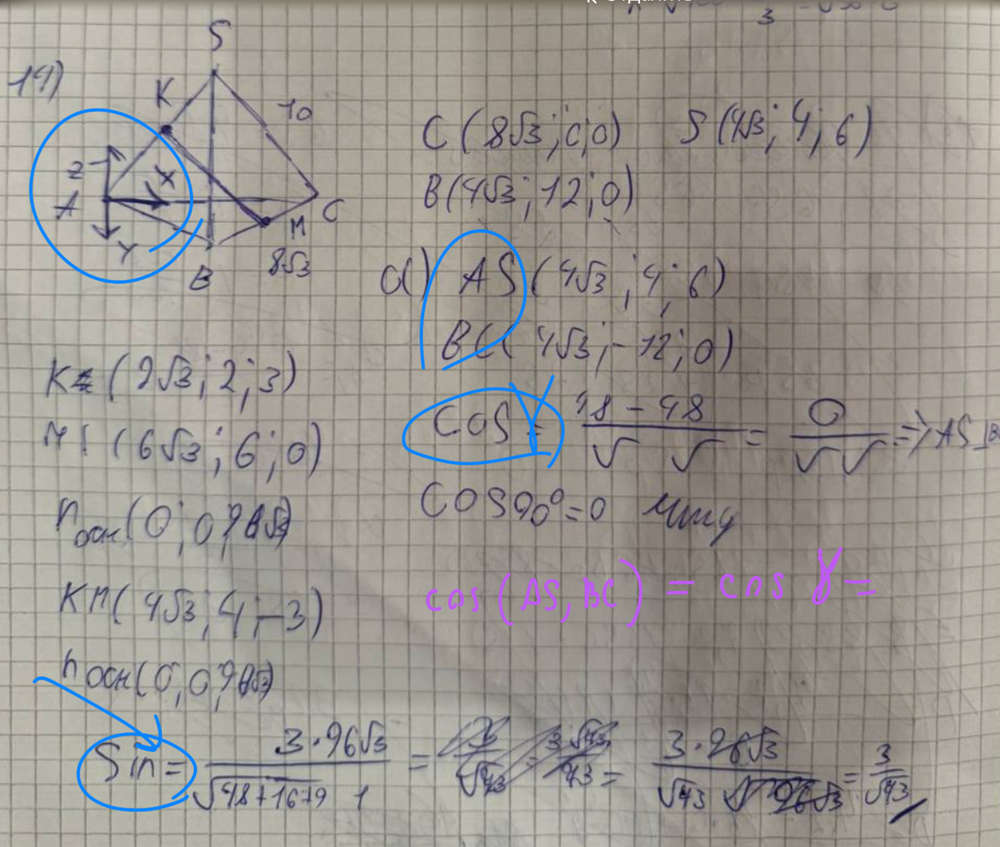 14)
S
K
10
Z
X
A
C
Y
M
B
8√3
C(8√3; 0; 0) S(4√3; 4; 6)
B(4√3; 12; 0)
a) AS(4√3; 4; 6)
BC(4√3; -12; 0)
cos = 48 - 48 / √ √ = 0 / √ √ => AS ⊥ B
cos 90° = 0 чтд
cos(AS, BC) = cos γ =
K(2√3; 2; 3)
M(6√3; 6; 0)
n осн(0; 0; 96√3)
KM(4√3; 4; -3)
n осн(0; 0; 96√3)
Sin = 3·96√3 / √48+16+9 1 = 3/√43 = 3√43/43 = 3·96√3 / √43 √96√3 = 3/√43